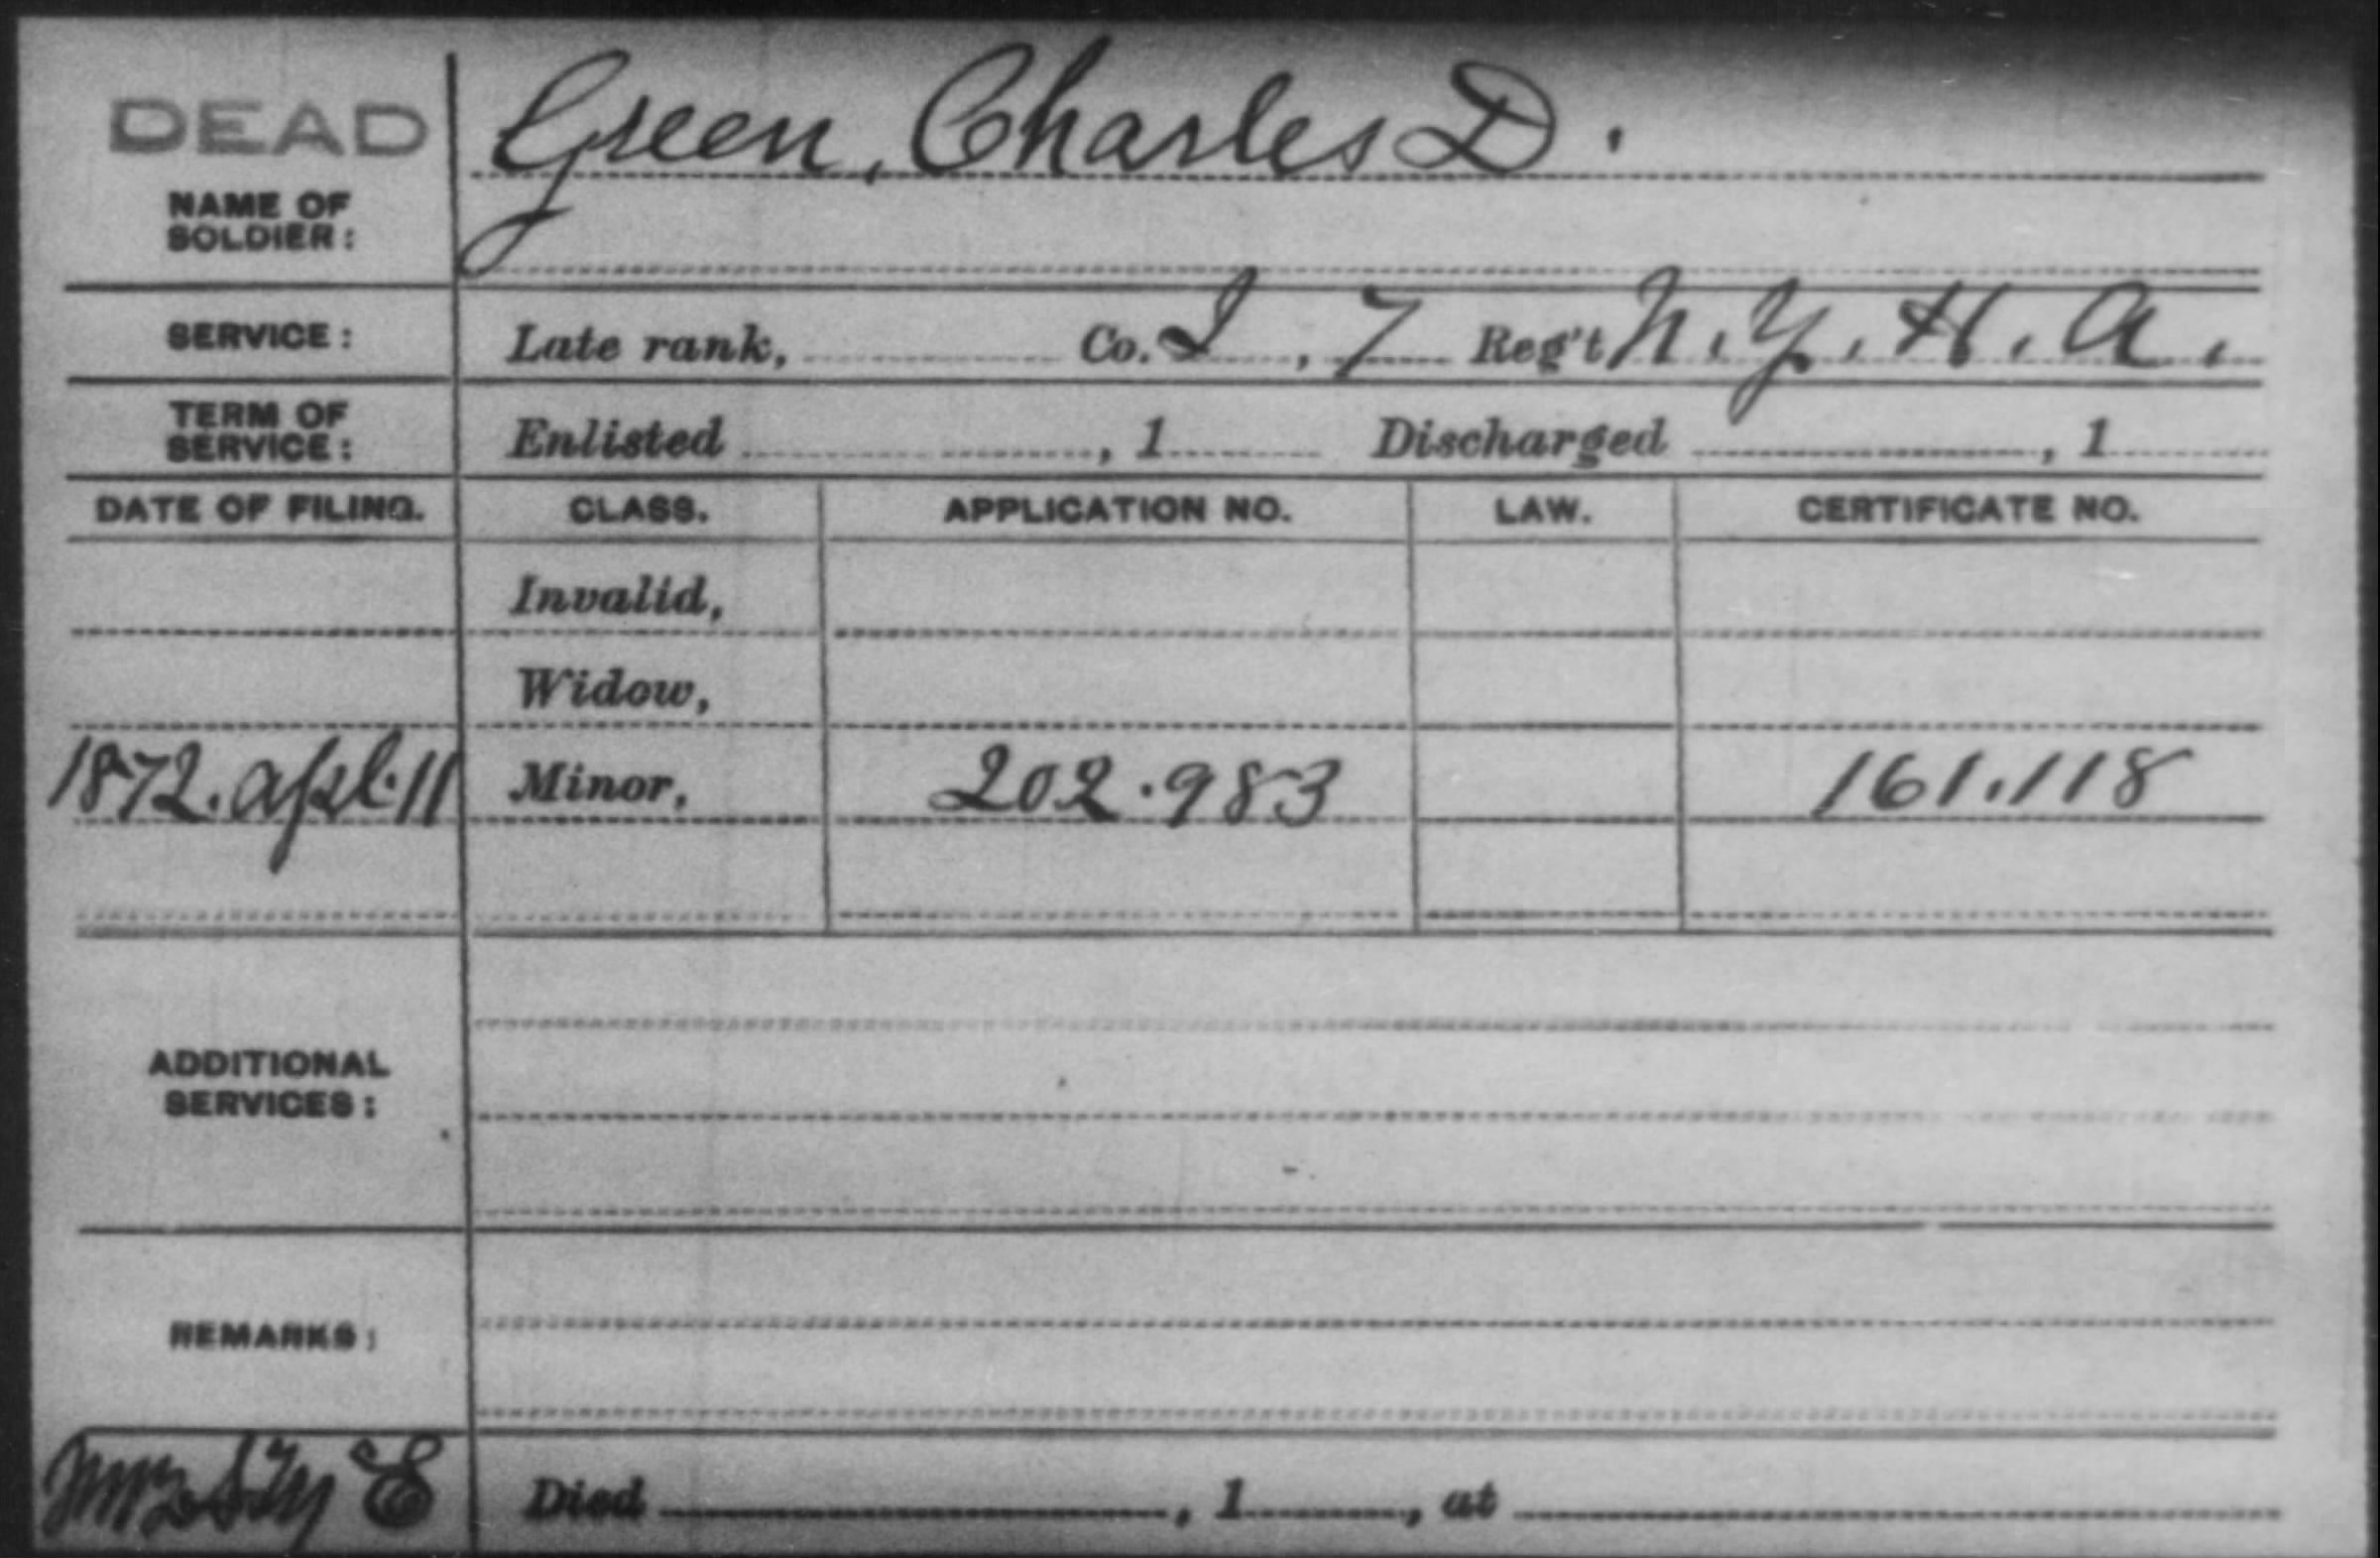 DEAD
Green, Charles D.
NAME OF
SOLDIER:
SERVICE: Late rank, Co. I, 7 Reg't N.Y.H.A.
TERM OF
SERVICE: Enlisted , 1 Discharged , 1
DATE OF FILING. CLASS. APPLICATION NO. LAW. CERTIFICATE NO.
Invalid,
Widow,
1872. Apl. 11 Minor, 202.983 161.118
ADDITIONAL
SERVICES:
REMARKS:
E Died , 1 , at